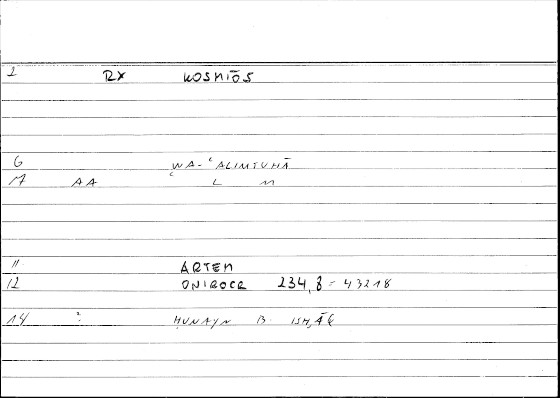 1 RX KOSMĪŌS
6 WA-ʿALIMTUHĀ
M AA L M
11 ARTEM
12 ONIROCR 234,8 = 43218
14 : ḤUNAYN B. ISḤĀQ